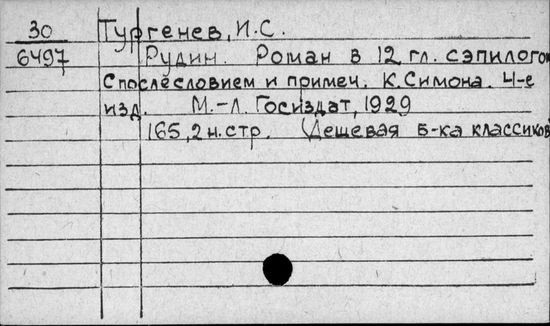 30 Тургенев, И.С.
6497 Рудин. Роман в 12 гл. сэпилогом
Спослесловием и примеч. К. Симона. 4-е
изд. М.-Л. Госиздат, 1929
165, 2 н. стр. (Дешевая б-ка классиков